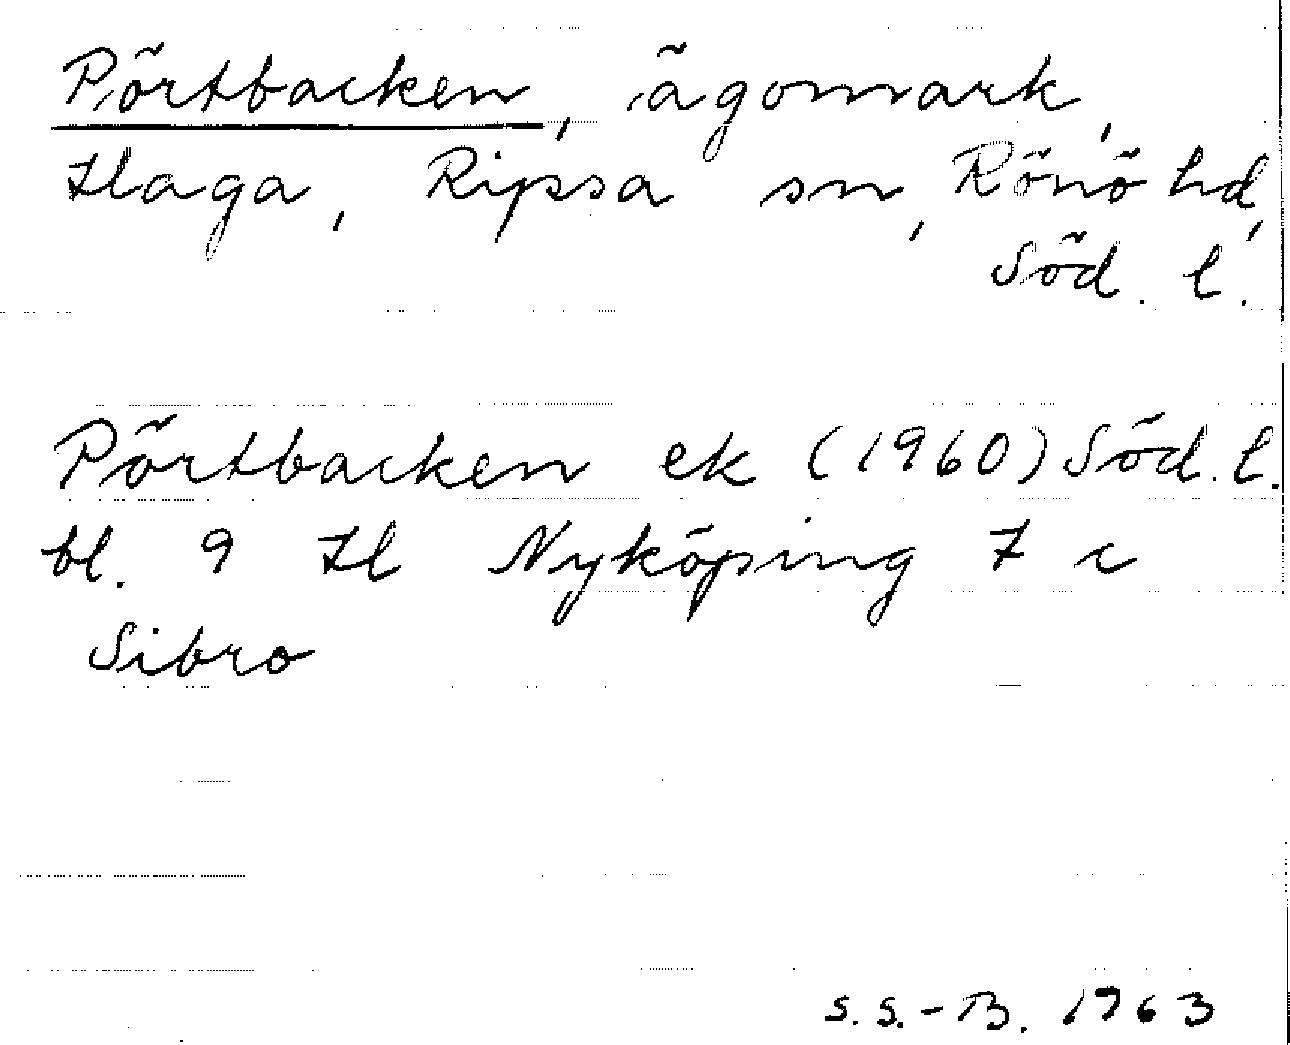 Pörtbacken, ägomark,
Haga, Ripsa sn, Rönö hd,
Söd. l.
Pörtbacken ek (1960) Söd. l.
bl. 9 H Nyköping 7 c
Sibro
S.S.-B. 1963